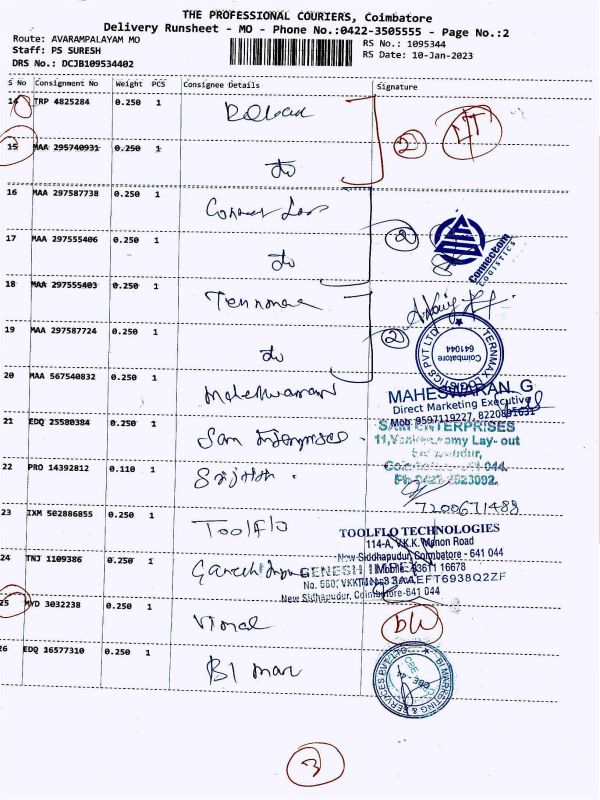 THE PROFESSIONAL COURIERS, Coimbatore
Delivery Runsheet - MO - Phone No.:0422-3505555 - Page No.:2
Route: AVARAMPALAYAM MO
RS No.: 1095344
Staff: PS SURESH
RS Date: 10-Jan-2023
DRS No.: DCJB109534402
S No Consignment No Weight PCS Consignee Details Signature
14 TRP 4825284 0.250 1
15 MAA 295740931 0.250 1 do
2
16 MAA 297587738 0.250 1
2
Connectom Logistics
17 MAA 297555406 0.250 1 do
18 MAA 297555403 0.250 1
19 MAA 297587724 0.250 1 do
2
TERNMAX LOGISTICS PVT LTD
Coimbatore 641044
20 MAA 567540832 0.250 1 Maheshwaran
MAHESWARAN. G
Direct Marketing Executive
Mob: 9597119227, 8220891631
21 EDQ 25580384 0.250 1 Sam Enterprises
SAM ENTERPRISES
Lay- out
22 PRO 14392812 0.110 1
7200671488
23 IXM 502886855 0.250 1 Toolflo
TOOLFLO TECHNOLOGIES
114-A, V.K.K. Menon Road
New Siddhapudur, Coimbatore - 641 044
24 TNJ 1109386 0.250 1
GENESH IMPEX
New Sidhapudur, Coimbatore-641 044
25 MYD 3032238 0.250 1 Vimal
26 EDQ 16577310 0.250 1 BI mar
BI MARKETING & SERVICES PVT LTD
3